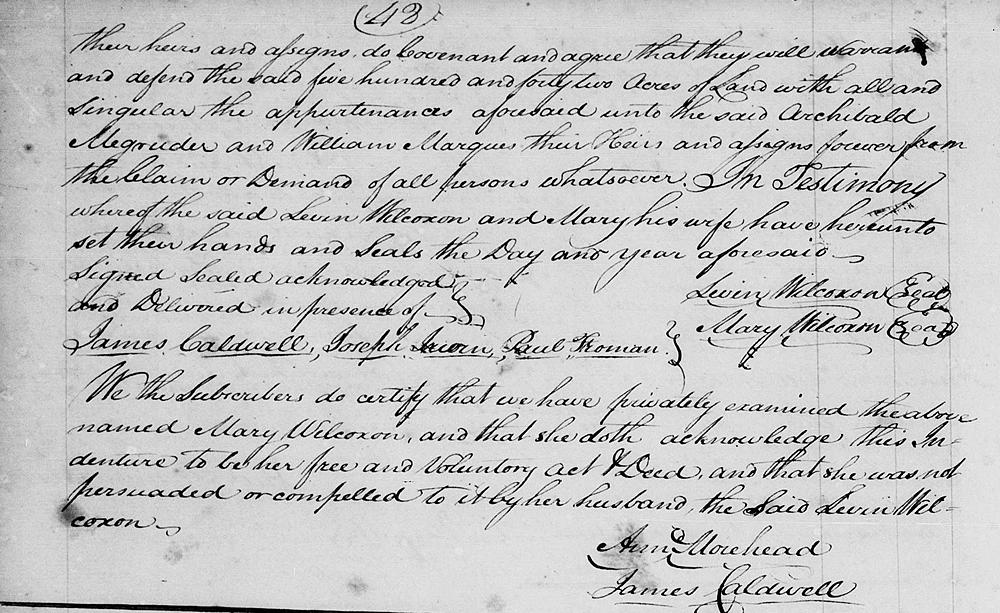 (43)
their heirs and assigns, do Covenant and agree that they will warrant
and defend the said five hundred and forty two Acres of Land with all and
Singular the appurtenances aforesaid unto the said Archibald
Megruder and William Marques their Heirs and assigns forever from
the Claim or Demand of all persons whatsoever. In Testimony
whereof the said Levin Wilcoxon and Mary his wife have hereunto
set their hands and Seals the Day and year aforesaid
Signed Sealed acknowledged
and Delivered in presence of
Levin Wilcoxon (Seal)
Mary Wilcoxon (Seal)
James Caldwell, Joseph Paul Froman
We the Subscribers do certify that we have privately examined the above
named Mary Wilcoxon, and that she doth acknowledge this In-
denture to be her free and Voluntory act & Deed, and that she was not
persuaded or compelled to it by her husband, the Said Levin Wil-
coxon
Armd. Morehead
James Caldwell